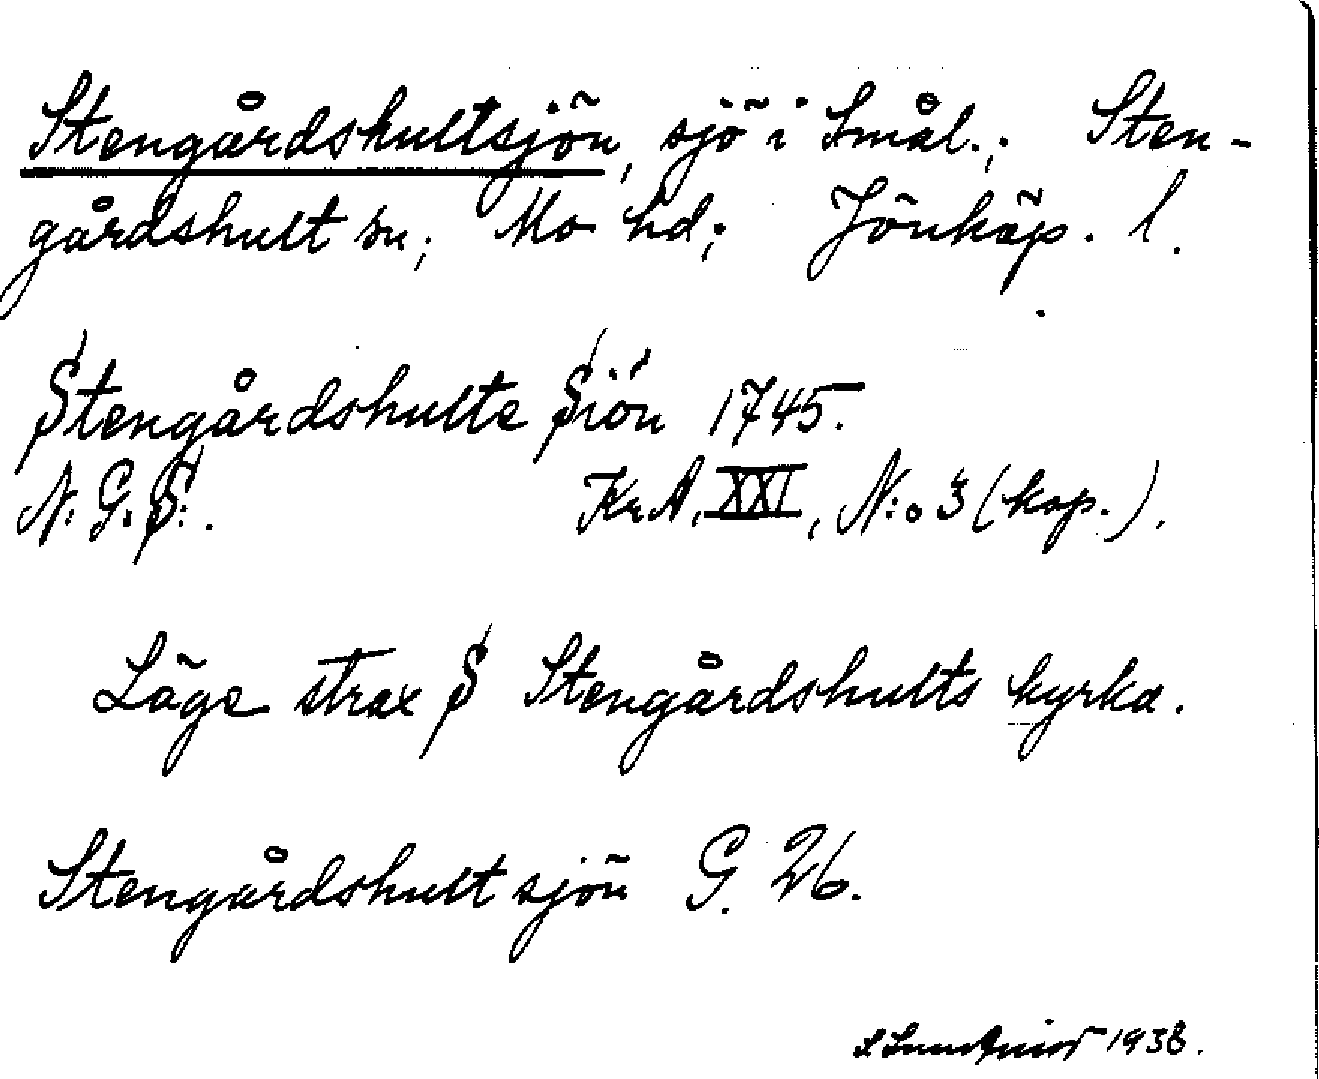 Stengårdshultsjön, sjö i Smål.; Sten-
gårdshult sn; Mo hd; Jönköp. l.
Stengårdshults Siön 1745.
N. G. S:. KrA, XXI, N:o 3 (kop.).
Läge strax S Stengårdshults kyrka.
Stengårdshult sjön G. 26.
1938.